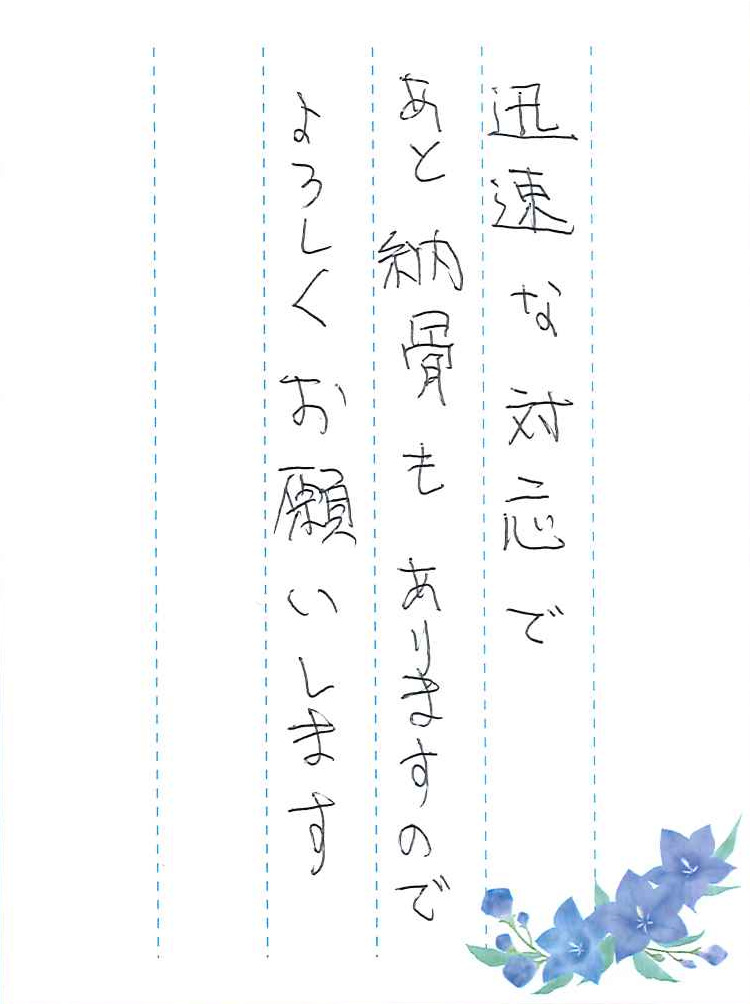 迅速な対応で
あと納骨もありますので
よろしくお願いします